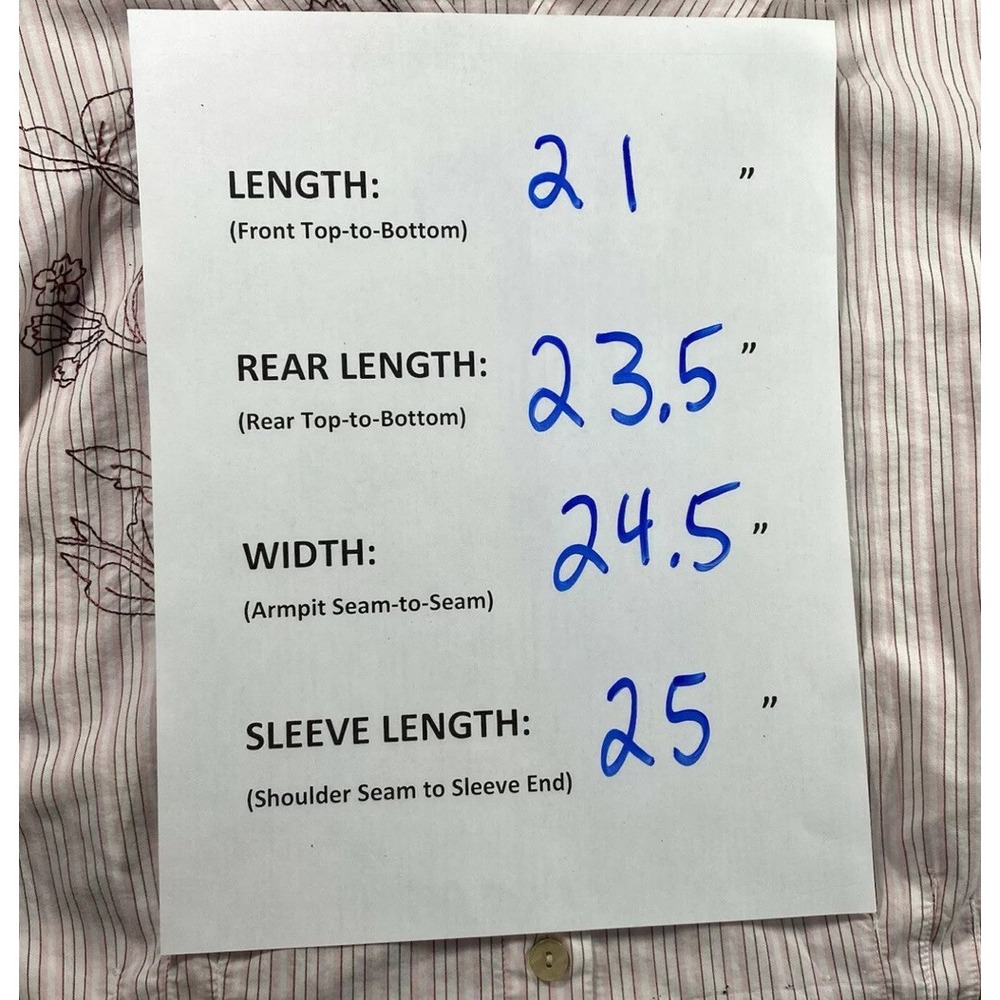 LENGTH: 21 ”
(Front Top-to-Bottom)
REAR LENGTH: 23.5 ”
(Rear Top-to-Bottom)
WIDTH: 24.5 ”
(Armpit Seam-to-Seam)
SLEEVE LENGTH: 25 ”
(Shoulder Seam to Sleeve End)